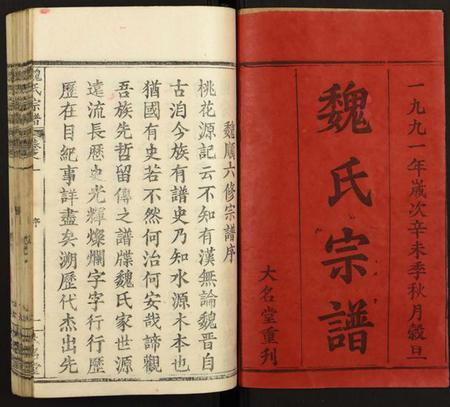 一九九一年歲次辛未季秋月穀旦
魏氏宗譜
大名堂重刊
魏順六修宗譜序
桃花源記云不知有漢無論魏晉自
古洎今族有譜史乃知水源木本也
猶國有史若不然何治何安哉諦觀
吾族先哲留傳之譜牒魏氏家世源
遠流長歷史光輝燦爛字字行行歷
歷在目紀事詳盡矣溯歷代杰出先
魏氏宗譜
卷之一
序